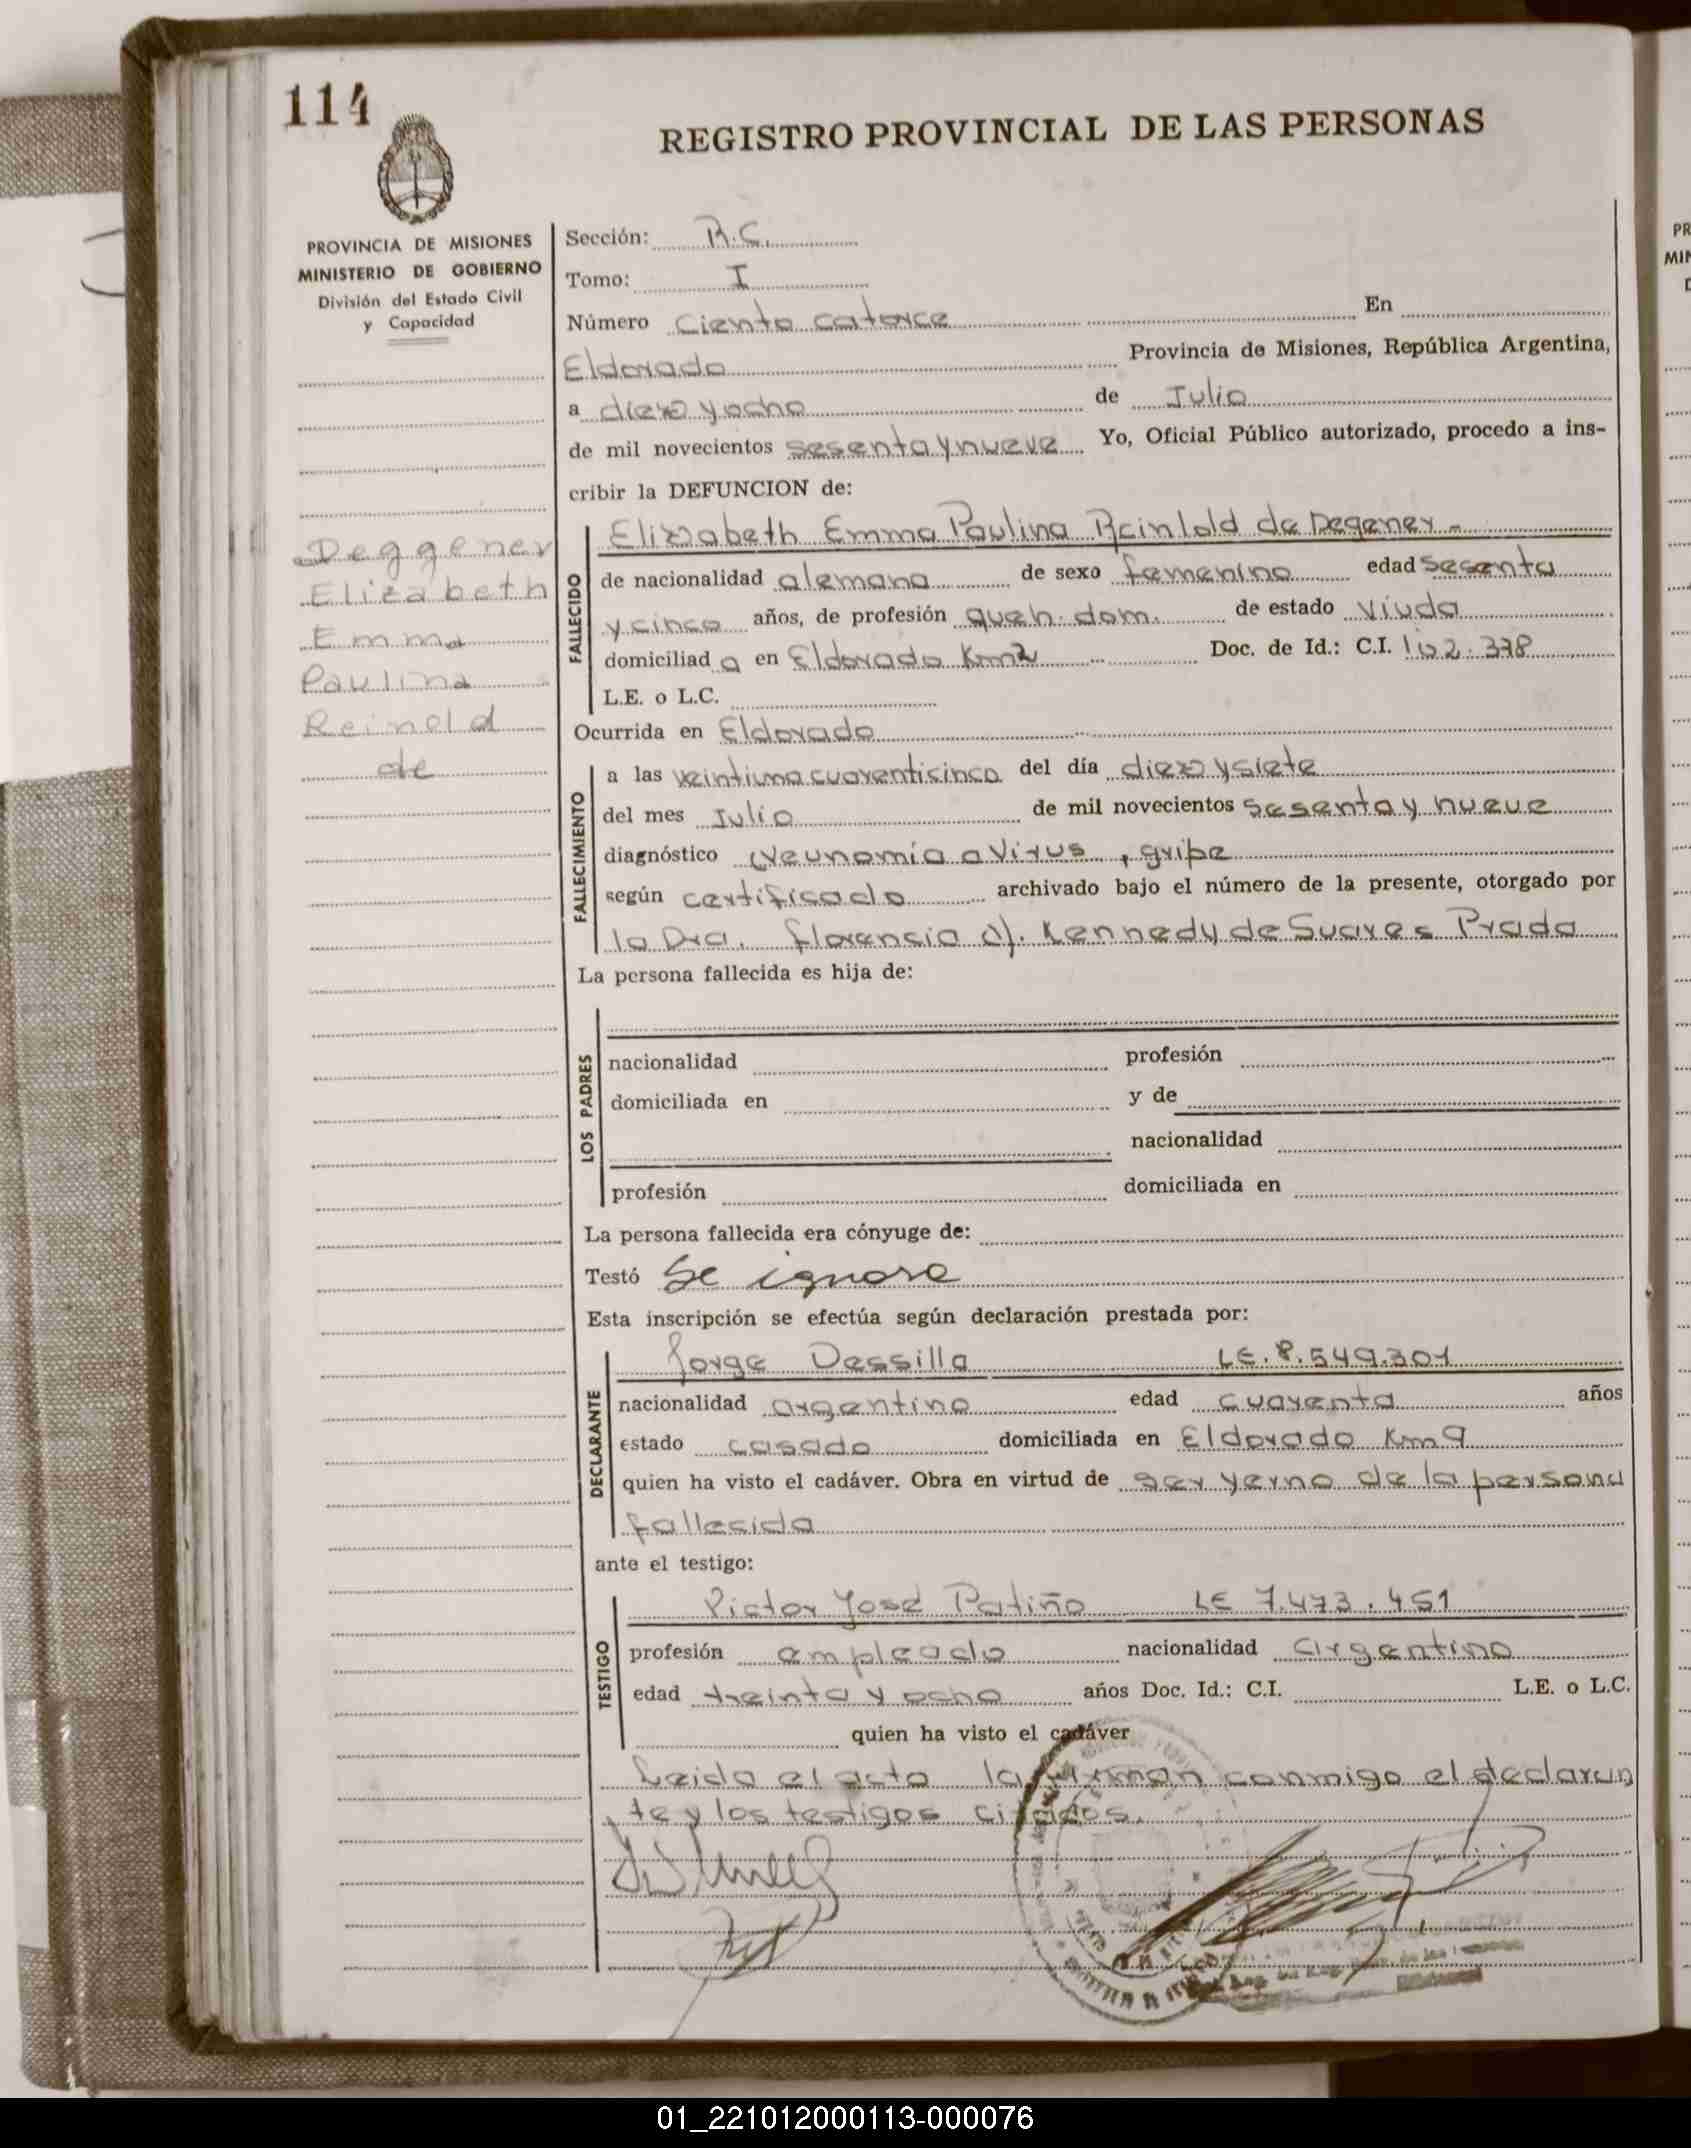 114
REGISTRO PROVINCIAL DE LAS PERSONAS
PROVINCIA DE MISIONES
MINISTERIO DE GOBIERNO
División del Estado Civil
y Capacidad
Deggener
Elizabeth
Emma
Paulina
Reinold
de
Sección: R.C.
Tomo: I
Número Ciento catorce En
Eldorado Provincia de Misiones, República Argentina,
a diez y ocho de Julio
de mil novecientos sesenta y nueve Yo, Oficial Público autorizado, procedo a ins-
cribir la DEFUNCION de:
FALLECIDO
Elizabeth Emma Paulina Reinlold de Degener -
de nacionalidad alemana de sexo femenino edad sesenta
y cinco años, de profesión queh. dom. de estado viuda
domiciliad a en Eldorado Km2 Doc. de Id.: C.I. 102.378
L.E. o L.C.
Ocurrida en Eldorado
FALLECIMIENTO
a las veintiuna cuarenticinco del día diez y siete
del mes Julio de mil novecientos sesenta y nueve
diagnóstico Neunomía a Virus, gripe
según certificado archivado bajo el número de la presente, otorgado por
la Dra. Florencia Kennedy de Suares Prada
La persona fallecida es hija de:
LOS PADRES
nacionalidad profesión
domiciliada en y de
nacionalidad
profesión domiciliada en
La persona fallecida era cónyuge de:
Testó Se ignora
Esta inscripción se efectúa según declaración prestada por:
DECLARANTE
Jorge Dessilla LE. 8.549.301
nacionalidad argentino edad cuarenta años
estado casado domiciliada en Eldorado Km 9
quien ha visto el cadáver. Obra en virtud de ser yerno de la persona
fallecida
ante el testigo:
TESTIGO
Victor José Patiño LE 7.473.451
profesión empleado nacionalidad argentino
edad treinta y ocho años Doc. Id.: C.I. L.E. o L.C.
quien ha visto el cadáver
Leida el acta la firman conmigo el declaran
te y los testigos citados.
01_221012000113-000076